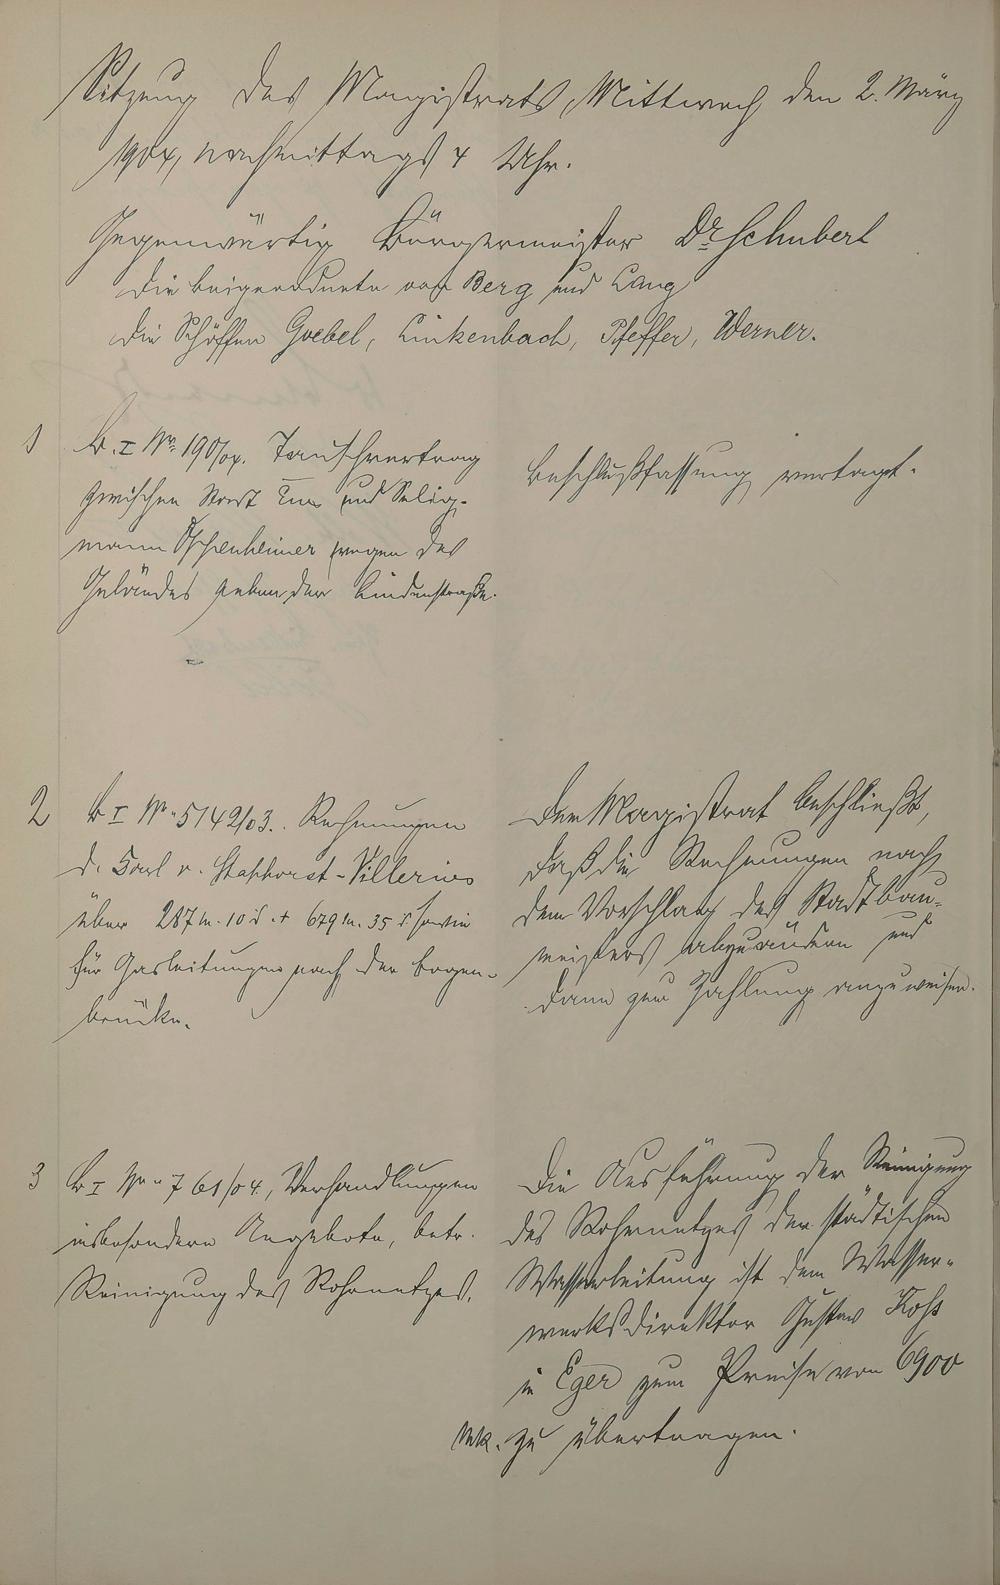 Sitzung des Magistrats, Mittwoch den 2. März
1904, nachmittags 4 Uhr.
Gegenwärtig Bürgermeister Dr Schubert
die Beigeordnete von Berg und Lang
die Schöffen Goebel, Linkenbach, Pfeffer, Werner.
1 B. I Nr. 190/04. Tauschvertrag
zwischen Stadt und Selig-
mann Oppenheimer wegen des
Geländes neben der Lindenstraße.
Beschlußfassung vertagt.
2 B I Nr. 5142/03. Rechnungen
d. Carl v. Staphorst-Villerius
über 287 M. 10 d. + 679 M. 35 d. sowie
für Gasleitungen nach der Bogen-
brücke.
Der Magistrat beschließt,
daß die Rechnungen nach
dem Vorschlag des Stadtbau-
meisters abzuändern und
dann zur Zahlung anzuweisen.
3 B I Nr. 761/04, Verhandlungen
insbesondere Angebote, betr.
Reinigung des Rohrnetzes.
Die Ausführung der Reinigung
des Rohrnetzes der städtischen
Wasserleitung ist dem Wasser-
werksdirektor Gustav
in Eger zum Preise von 6900
Mk. zu übertragen.